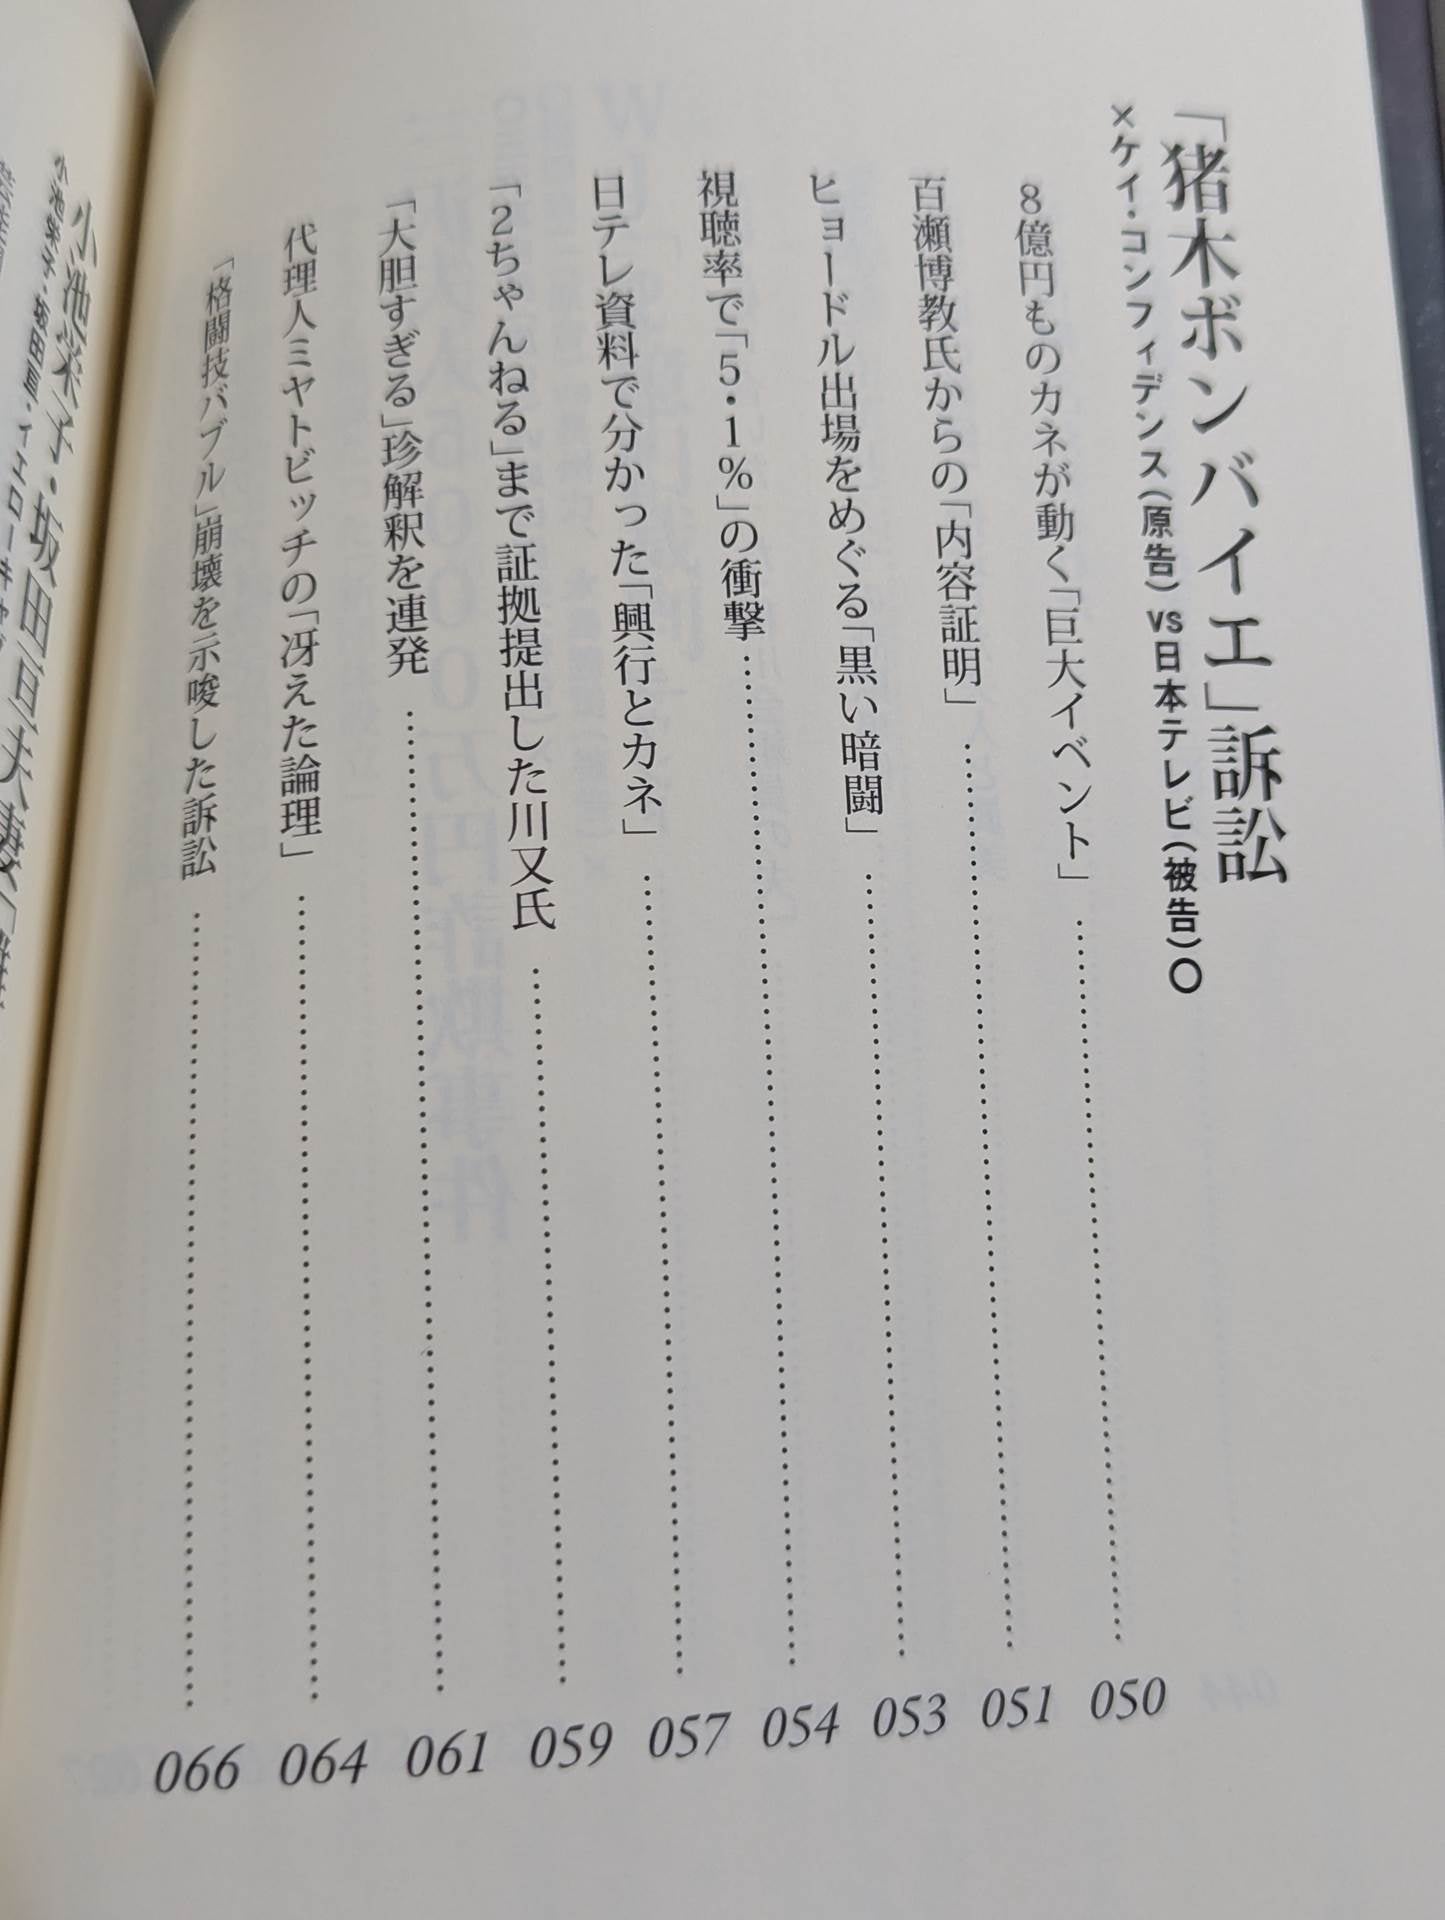 「猪木ボンバイエ」訴訟
×ケイ・コンフィデンス(原告) vs 日本テレビ(被告)〇
8億円ものカネが動く「巨大イベント」 050
百瀬博教氏からの「内容証明」 051
ヒョードル出場をめぐる「黒い暗闘」 053
視聴率で「5・1%」の衝撃 054
日テレ資料で分かった「興行とカネ」 057
「2ちゃんねる」まで証拠提出した川又氏 059
「大胆すぎる」珍解釈を連発 061
代理人ミヤトビッチの「冴えた論理」 064
「格闘技バブル」崩壊を示唆した訴訟 066
小池栄子・坂田亘夫妻
小池栄子・坂田亘・イエローキャブ